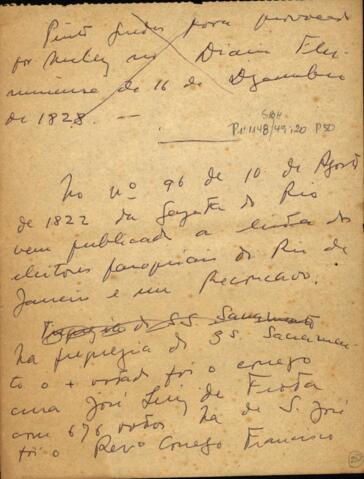 Pinto Guedes para provocad
por
no Diario Flu-
minense de 16 de Dezembro
de 1828. —
SBH
Pi 148/49:20 P50
No nº 96 de 10 de Agosto
de 1822 da Gazeta do Rio
vem publicad a lista dos
eleitores paroquiais do Rio de
Janeiro e seu Reconcavo.
Freguezia do SS. Sacramento
Na freguezia do SS Sacramen-
to o + votado foi o conego
cura José Luiz de Frota
com 676 votos na de S. José
foi o Revo Conego Francisco